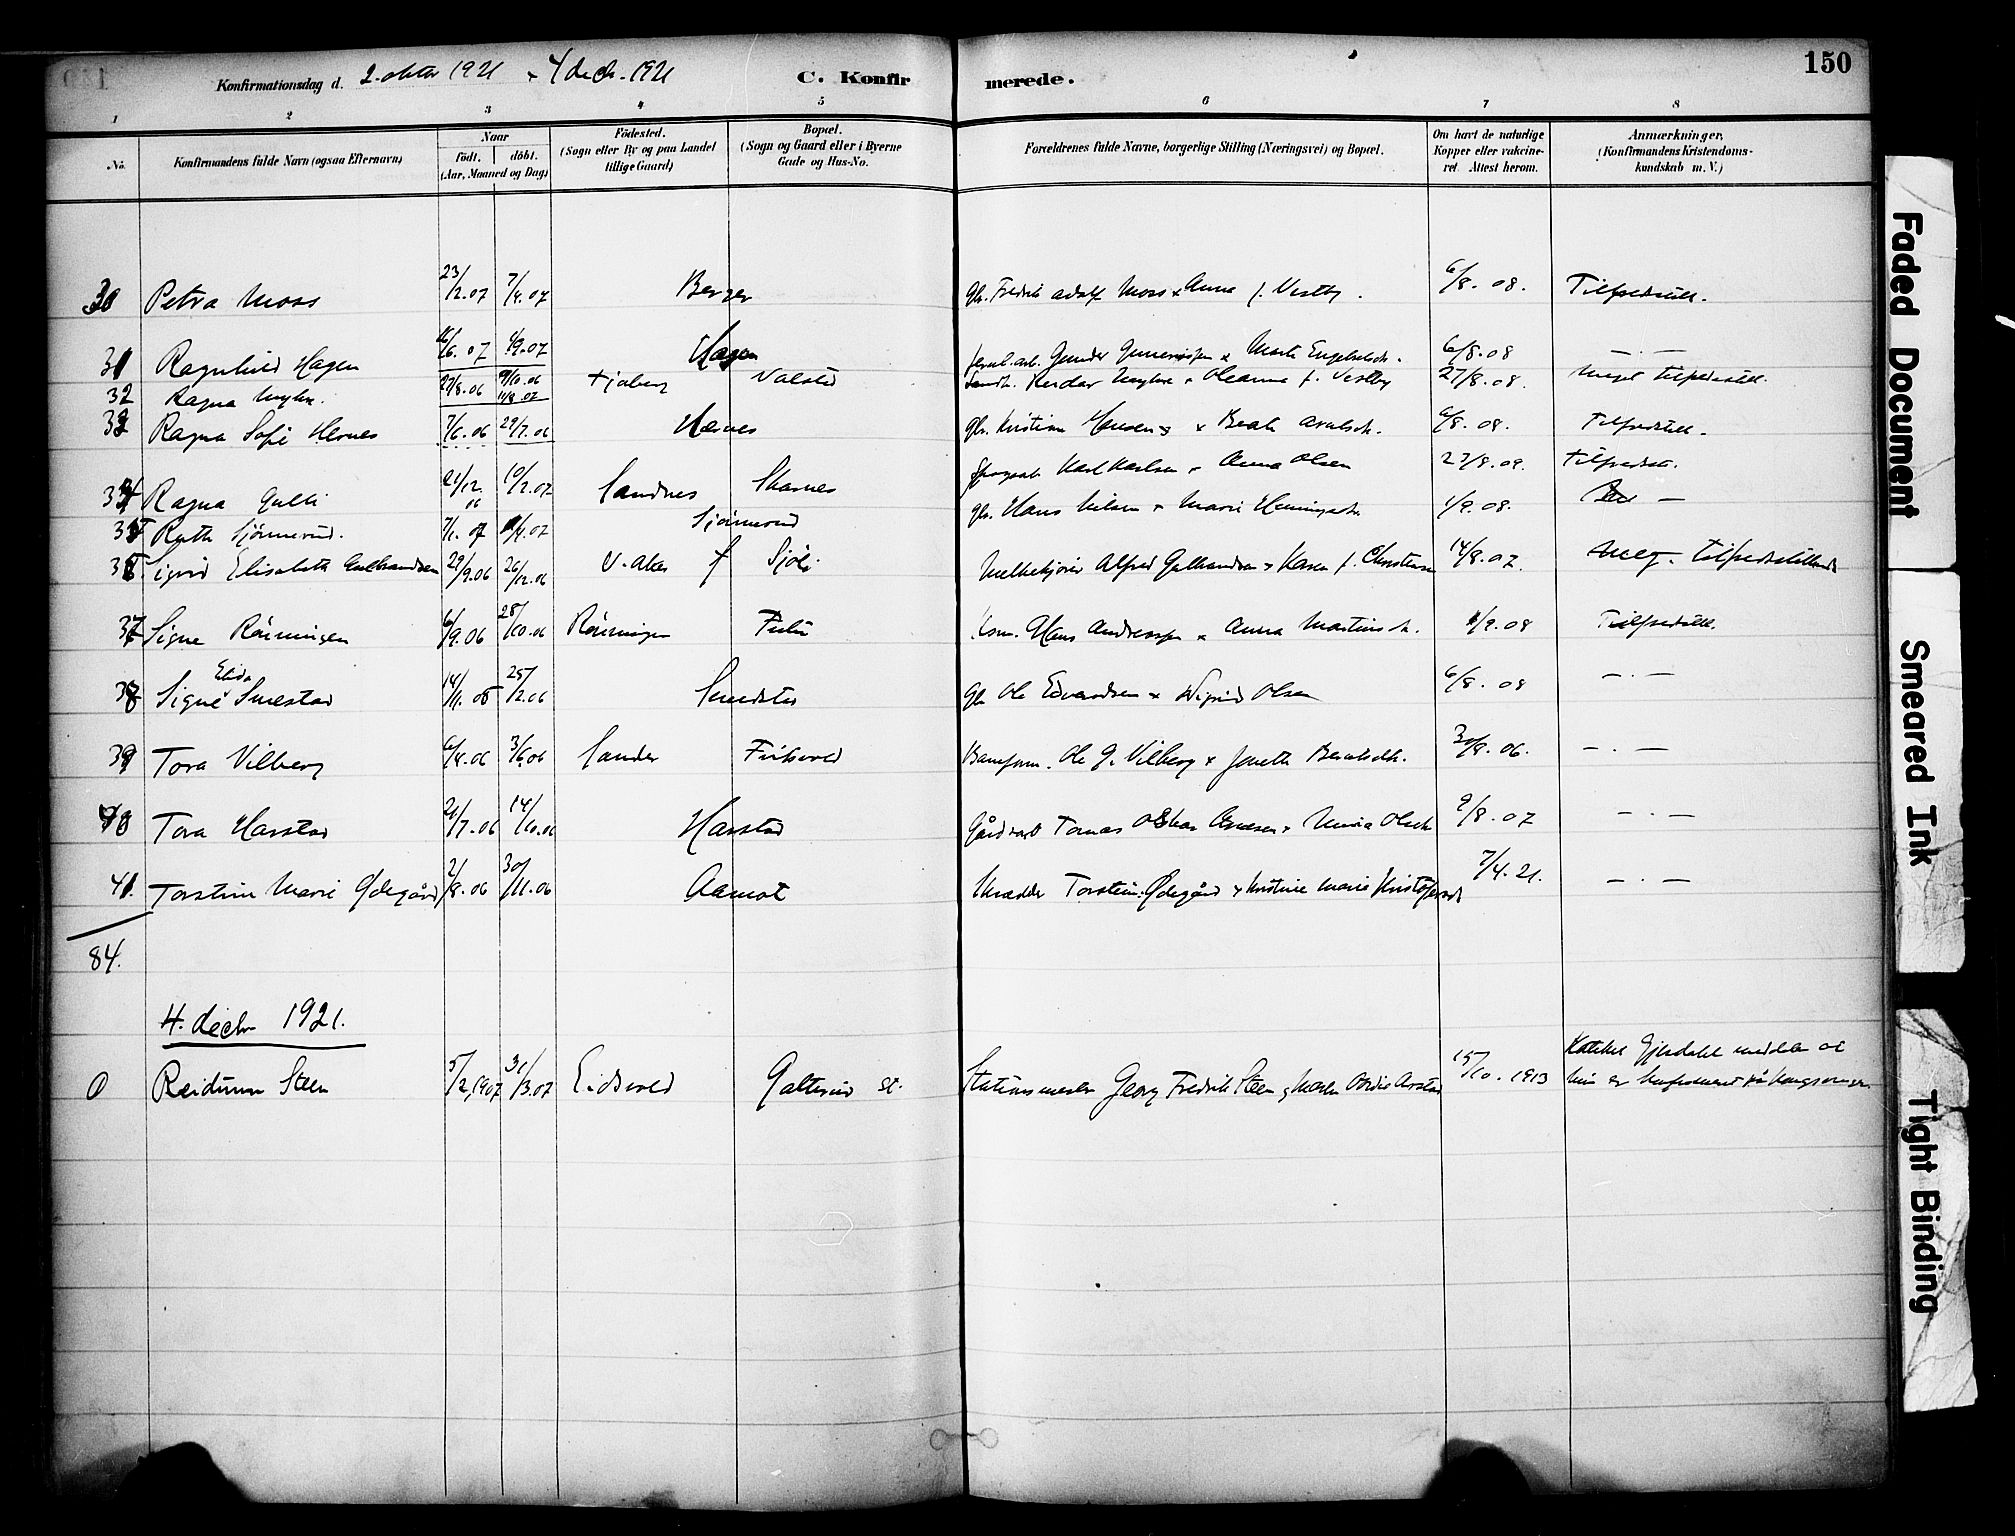 150
Konfirmationsdag d. 2. oktbr 1921 & 4 decb. 1921 C. Konfirmerede.
1 2 3 4 5 6 7 8
No. Konfirmandens fulde Navn (ogsaa Efternavn) Naar födt. döbt. (Aar, Maaned og Dag) Födested. (Sogn eller By og paa Landet tillige Gaard) Bopæl. (Sogn og Gaard eller i Byerne Gade og Hus-No. Forældrenes fulde Navne, borgerlige Stilling (Næringsvei) og Bopæl. Om havt de naturlige Kopper eller vakcineret. Attest herom. Anmærkninger. (Konfirmandens Kristendomskundskab m. V.)
30 Petra Moss 23/2.07 7/4.07 Berger Gbr. Fredrik Adolf Moss & Anna f. Vestby. 6/8.08. Tilfredsstill.
31 Ragnhild Hagen 16/6.07 1/9.07 Hagen Gunder & Marte Engebretsd. 6/8.08 — . —
32 Ragna Myhr. 27/8.06 9/10.06 11/8.07 Valstad Landh. Reidar Myhre & Oleanna f. Vestby 27/8.08. meget tilfredsstill.
33 Ragna Sofie Hernes 7/6.06 29/7.06 Hernes Gbr. Kristian Hansen & Beate 6/8.08. Tilfredsstill.
Karl Karlsen & Anna Olsen 27/8.09. Tilfredsst.
34 Ragna Gulli 21/12.06 10/2.07 Sandnes Skarnes Gbr. Hans Nilsen & Marie Henningsd. 1/9.08. —
35 Ruth Sjönnerud. 7/1.07 1/4.07 Sjönnerud
36 Sigrid Elisabeth Gulbrandsen 29/9.06 26/12.06 V. Aker f Sjöli. Melkekjörer Alfred Gulbrandsen & Karen f. Christensen 14/8.07. Meg. tilfredsstillende
37 Signe Rönningen 6/9.06 28/10.06 Rönningen Hans Andreassen & Anna Martinsd. 1/9.08 Tilfredsstill.
38 Signe Elida Smestad 14/11.05 25/2.06 Smedstad Gbr Ole Edvardsen & Sigrid Olsen 6/8.08 — . —
39 Tora Vilberg 6/4.06 3/6.06 Sander Ole G. Vilberg & Josette 30/8.06. — . —
40 Tora Harstad 21/7.06 14/10.06 Harstad Tomas Oskar & Maria Olsen 9/8.07 — . —
41. Torstine Marie Ödegård 2/8.06 30/11.06 Aamot Skrædder Torstein Ødegård & Kristine Marie Kristofersd. 7/4.21. — . —
84.
4. decbr 1921.
0 Reidunn Steen 5/2.1907 31/3.07 Eidsvold Galterud st. Stationsmester Georg Fredrik Steen & Marta Ovidia Arstad 15/10.1913 meddeler at
hun er konfirmeret på Kongsvinger
Faded Document
Smeared Ink
Tight Binding